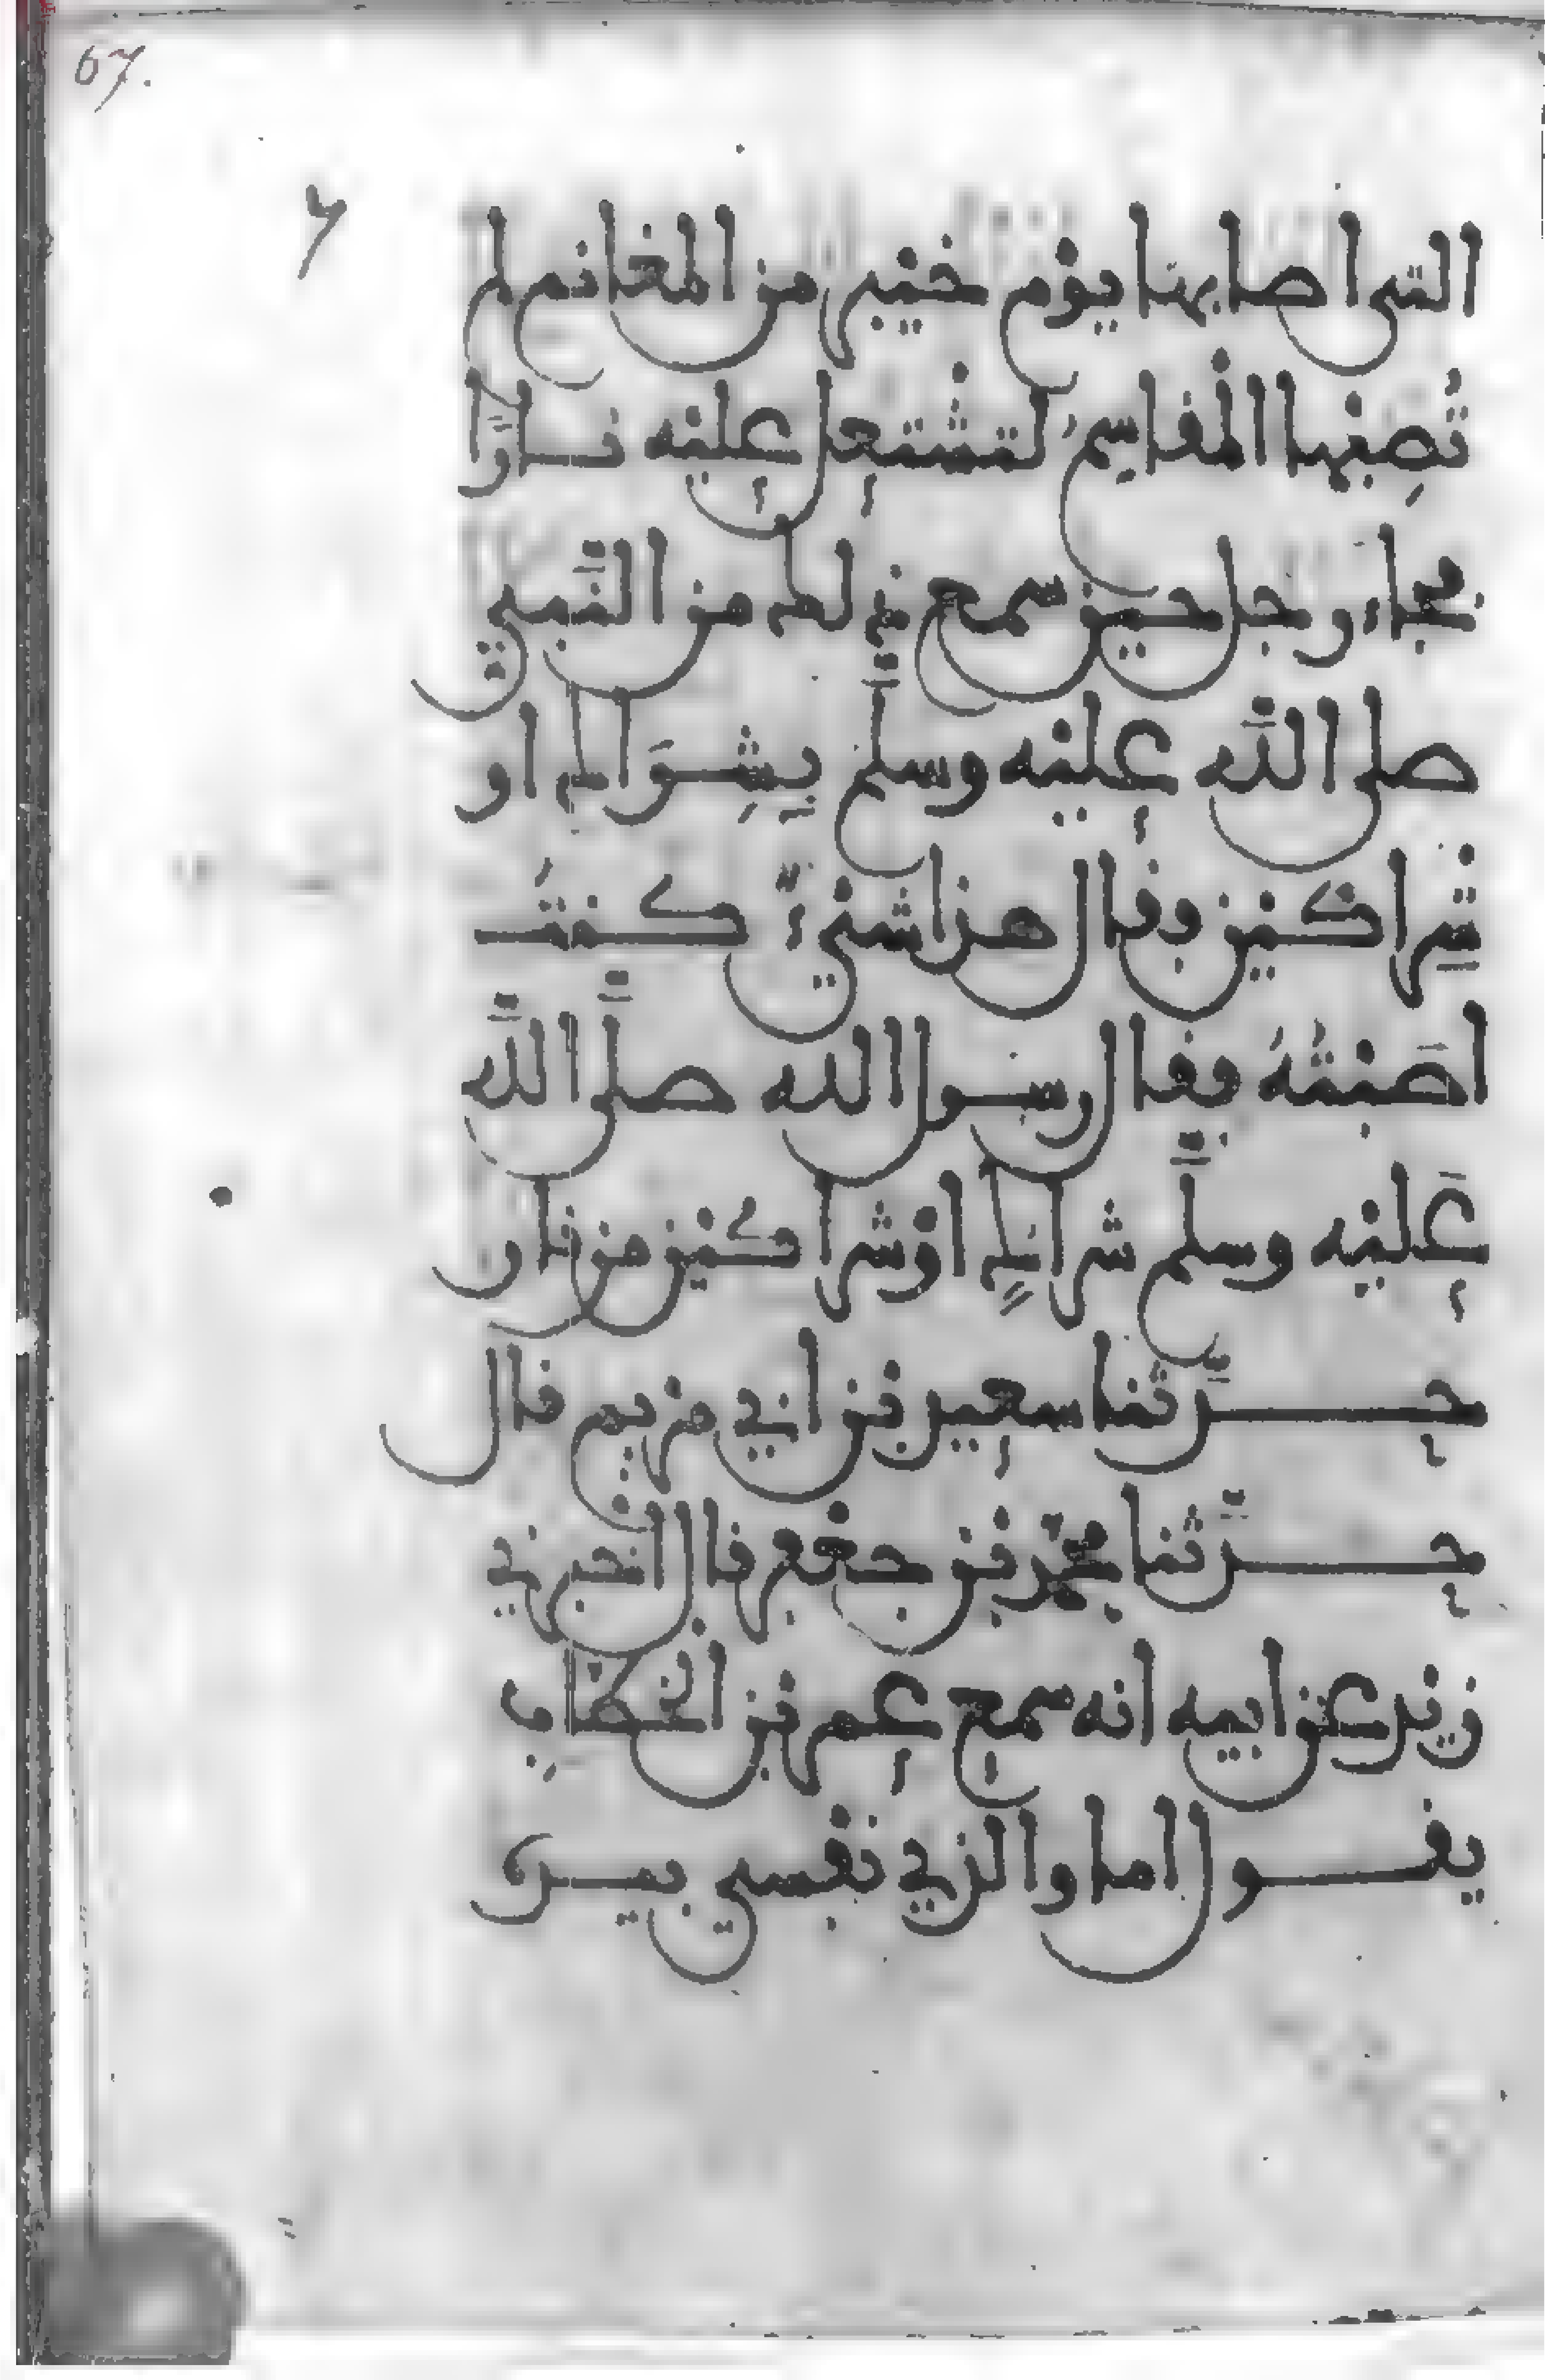 67.
التى اصابها يوم خيبر من المغانم لم
تُصِبْها المقاسِمُ لتشتعل عليه نارًا
فجاء رجل حين سمع ذلك من النَّبي
صلى اللَّه عليْه وسلَّم بِشِرَاك او
شِراكيْن فقال هذا شيْءٌ كنتُ
اصَبْتُهُ فقال رسول الله صلَّى اللَّه
عَليْه وسلَّم شراكٍ اوْ شراكيْن من نار
حدَّثنا سعيد بْن ابي مرْيم قال
حدَّثنا محمَّد بْن جعْفر قال اخْبرني
زيْد عن ابيه انه سمع عمر بْن الخطَّابِ
يقول اما والذي نفْسي بيده